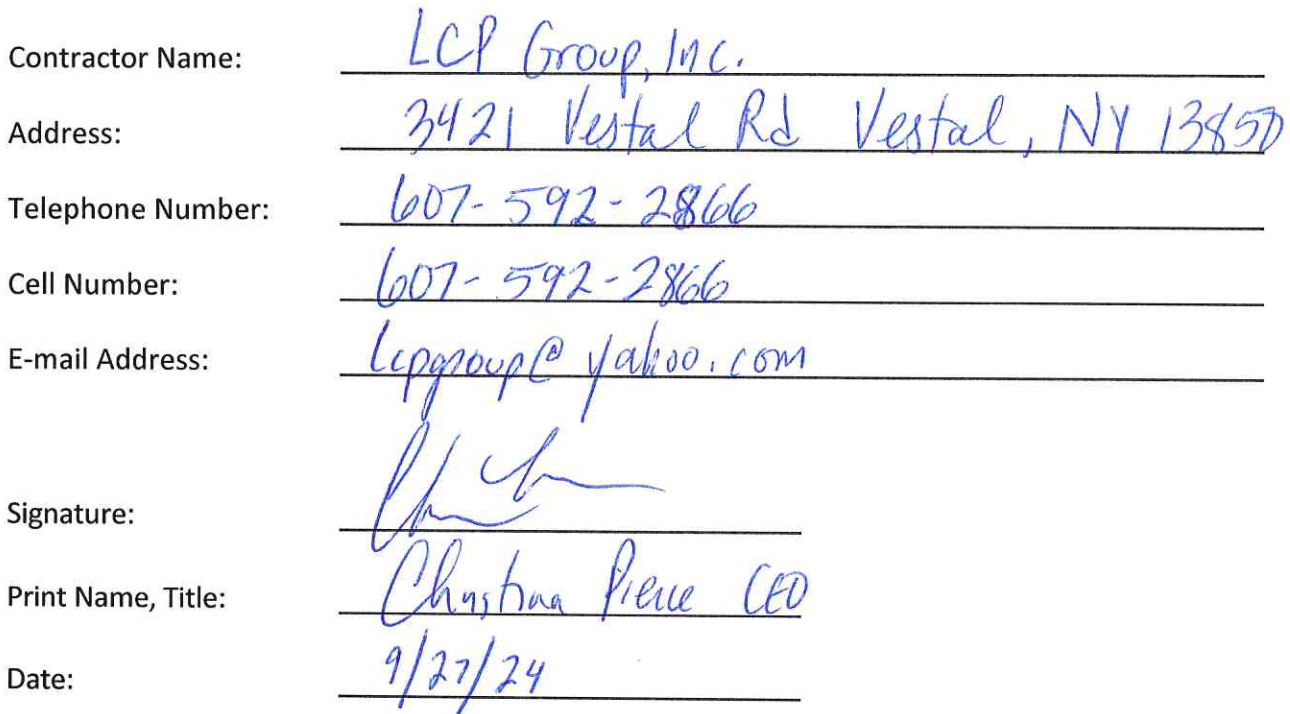 Contractor Name: LCP Group, Inc.
Address: 3421 Vestal Rd Vestal, NY 13850
Telephone Number: 607-592-2866
Cell Number: 607-592-2866
E-mail Address: lcpgroup@yahoo.com
Signature:
Print Name, Title: Christina Pierce CEO
Date: 9/27/24